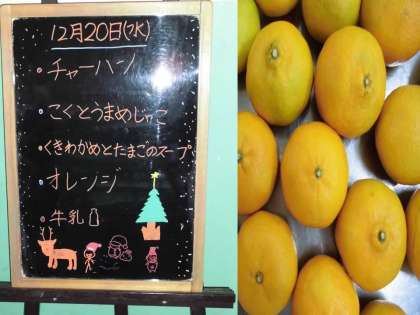 12月20日(水)
・チャーハン
・こくとうまめじゃこ
・くきわかめとたまごのスープ
・オレンジ
・牛乳